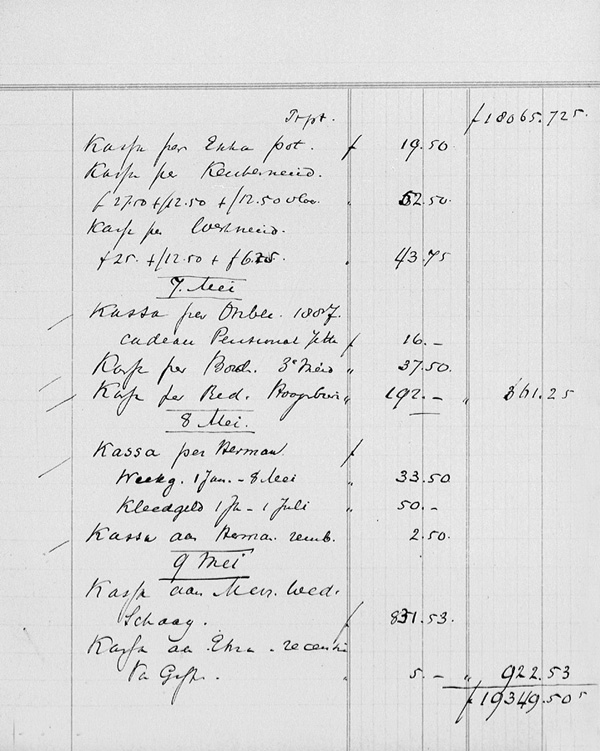 Trpt. f 18065.725.
Kassa per Enha pot. f 19.50
Kassa per
f 27.50 + f 12.50 + f 12.50 " 52.50.
Kassa per
f 25. + f 12.50 + f 6.25. " 43.75
7. Mei
Kassa per Onbee. 1887.
cadeau Pensionat f 16.-
Kassa per Bood. 3e " 37.50.
Kassa per Bed. " 192.- " 361.25
8 Mei.
Kassa per Herman f
Weekg. 1 Jan. - 8 Mei " 33.50
Kleedgeld 1 Ja - 1 Juli " 50.-
Kassa aan Herman remb. 2.50.
9 Mei
Kassa aan Mevr. Wed.
Schaag. f 831.53.
Kassa aa
" 5.- " 922.53
f 19349.505